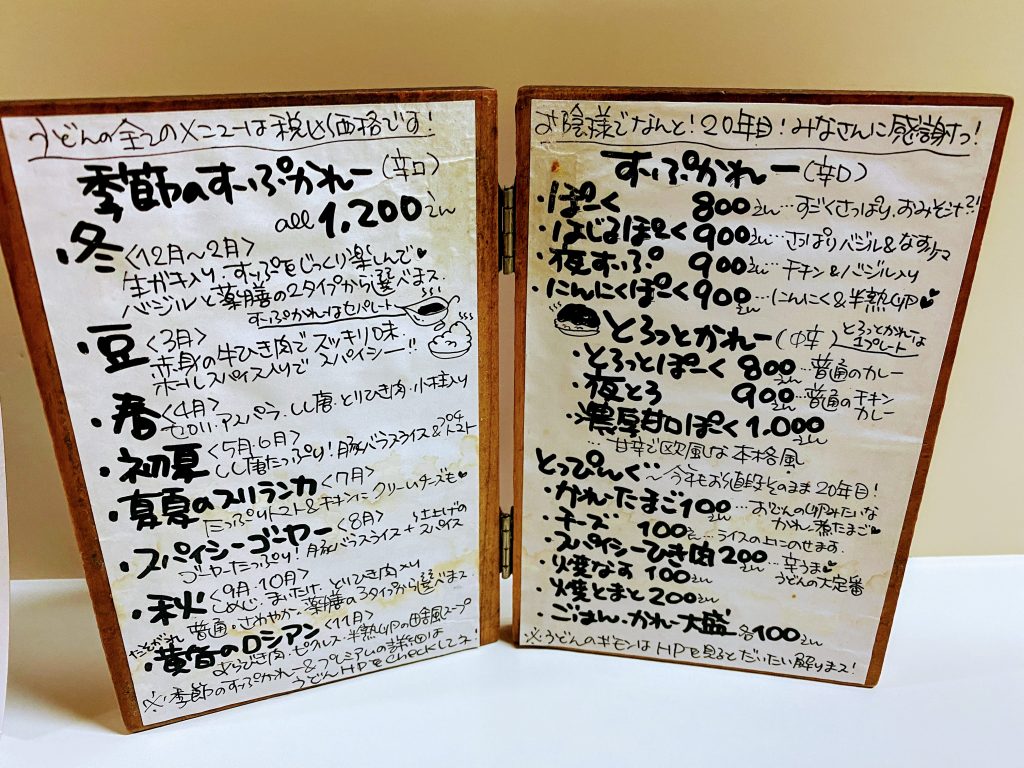 うどんの全てのメニューは税込価格です!
季節のすーぷかれー(辛口)
all 1,200えん
・冬<12月~2月>
生ガキ入り、すーぷをじっくり楽しんで♥
バジルと薬膳の2タイプから選べます。
すーぷかれーはセパレート
・豆<3月>
赤身の牛ひき肉でスッキリ味。
ホールスパイス入りでスパイシー!!
・春<4月>
セロリ、アスパラ、しし唐、とりひき肉、小柱入り
・初夏<5月、6月>
しし唐たっぷり!豚バラスライス&プチトマト
・真夏のスリランカ<7月>
たっぷりトマト&チキンに、クリームチーズも♥
・スパイシーゴーヤー<8月>
ゴーヤーたっぷり!豚バラスライス+仕上げのスパイス
・秋<9月、10月>
しめじ、まいたけ、とりひき肉入り
普通、さわやか、薬膳の3タイプから選べます
・黄昏のロシアン<11月>
たそがれ
あらびき肉、ピクルス、半熟卵の田舎風スープ
※季節のすーぷかれー&プレミアムの詳細は
うどんHPをCheckしてネ!
お陰様でなんと!20年目!みなさんに感謝っ!
すーぷかれー(辛口)
・ぽーく 800えん…すごくさっぱり、おみそ汁?!
・ばじるぽーく 900えん…さっぱりバジル&なすイタマ
・夜すーぷ 900えん…チキン&バジル入り
・にんにくぽーく 900えん…にんにく&半熟卵♥
とろっとかれー(中辛)
とろっとかれーは1プレート
・とろっとぽーく 800えん…普通のカレー
・夜とろ 900えん…普通のチキンカレー
・濃厚甘口ぽーく 1,000えん
…甘辛で欧風な本格風
とっぴんぐ~今年もお値段そのまま20年目!
・かれーたまご 100えん…おでんの卵みたいなかれー煮たまご♥
・チーズ 100えん…ライスの上にのせます。
・スパイシーひき肉 200えん…辛うま♥うどんの大定番
・焼なす 100えん
・焼とまと 200えん
・ごはん、かれー大盛 各100えん
※うどんのギモンはHPを見るとだいたい解ります!